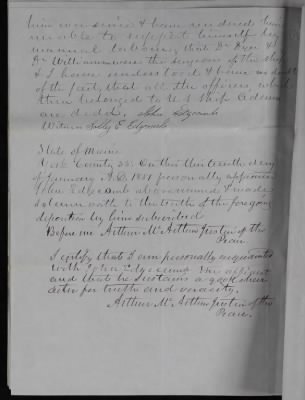 him ever since & have rendered him
unable to support himself by
manual labour, that Dr Dyer &
Dr Williams were the surgeons of the ship
& I have understood & have no doubt
of the fact, that all the officers which
then belonged to U.S. Ship Adams
are dead. John Edgcomb
Witness Sally E. Edgcomb
State of Maine
York County SS. On this thirteenth day
of January A.D. 1851 personally appeared
John Edgcomb above named & made
solemn oath to the truth of the foregoing
deposition by him subscribed
Before me Arthur McArthur Justice of the
Peace.
I certify that I am personally acquainted
with John Edgcomb the affiant
and that he sustains a good char
acter for truth and veracity.
Arthur McArthur Justice of the
Peace.